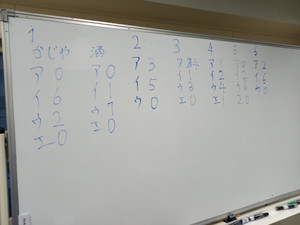 1
かじや 酒 2 3 4 5 6
ア0 ア0 ア3 ア4 ア1 ア2
イ6 イ1 イ5 イ1 イ2 イ6
ウ2 ウ7 ウ0 ウ3 ウ4 ウ0
エ0 エ0 エ0 エ1